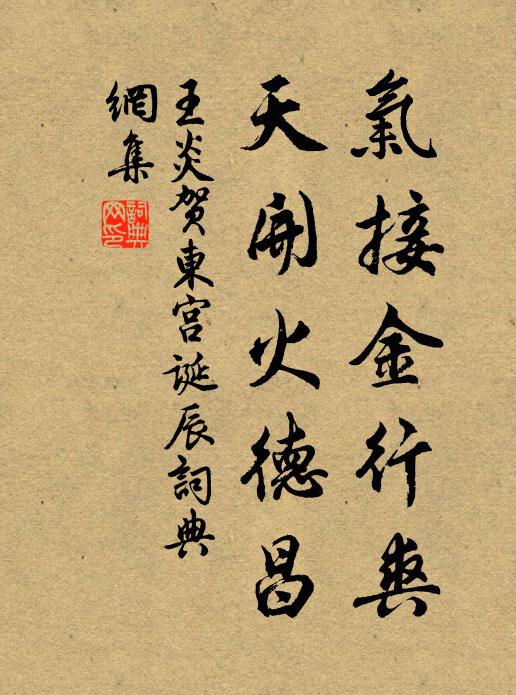 氣接金行爽
天開火德昌
王炎賀東宮誕辰詞典
網集
詞典
网印